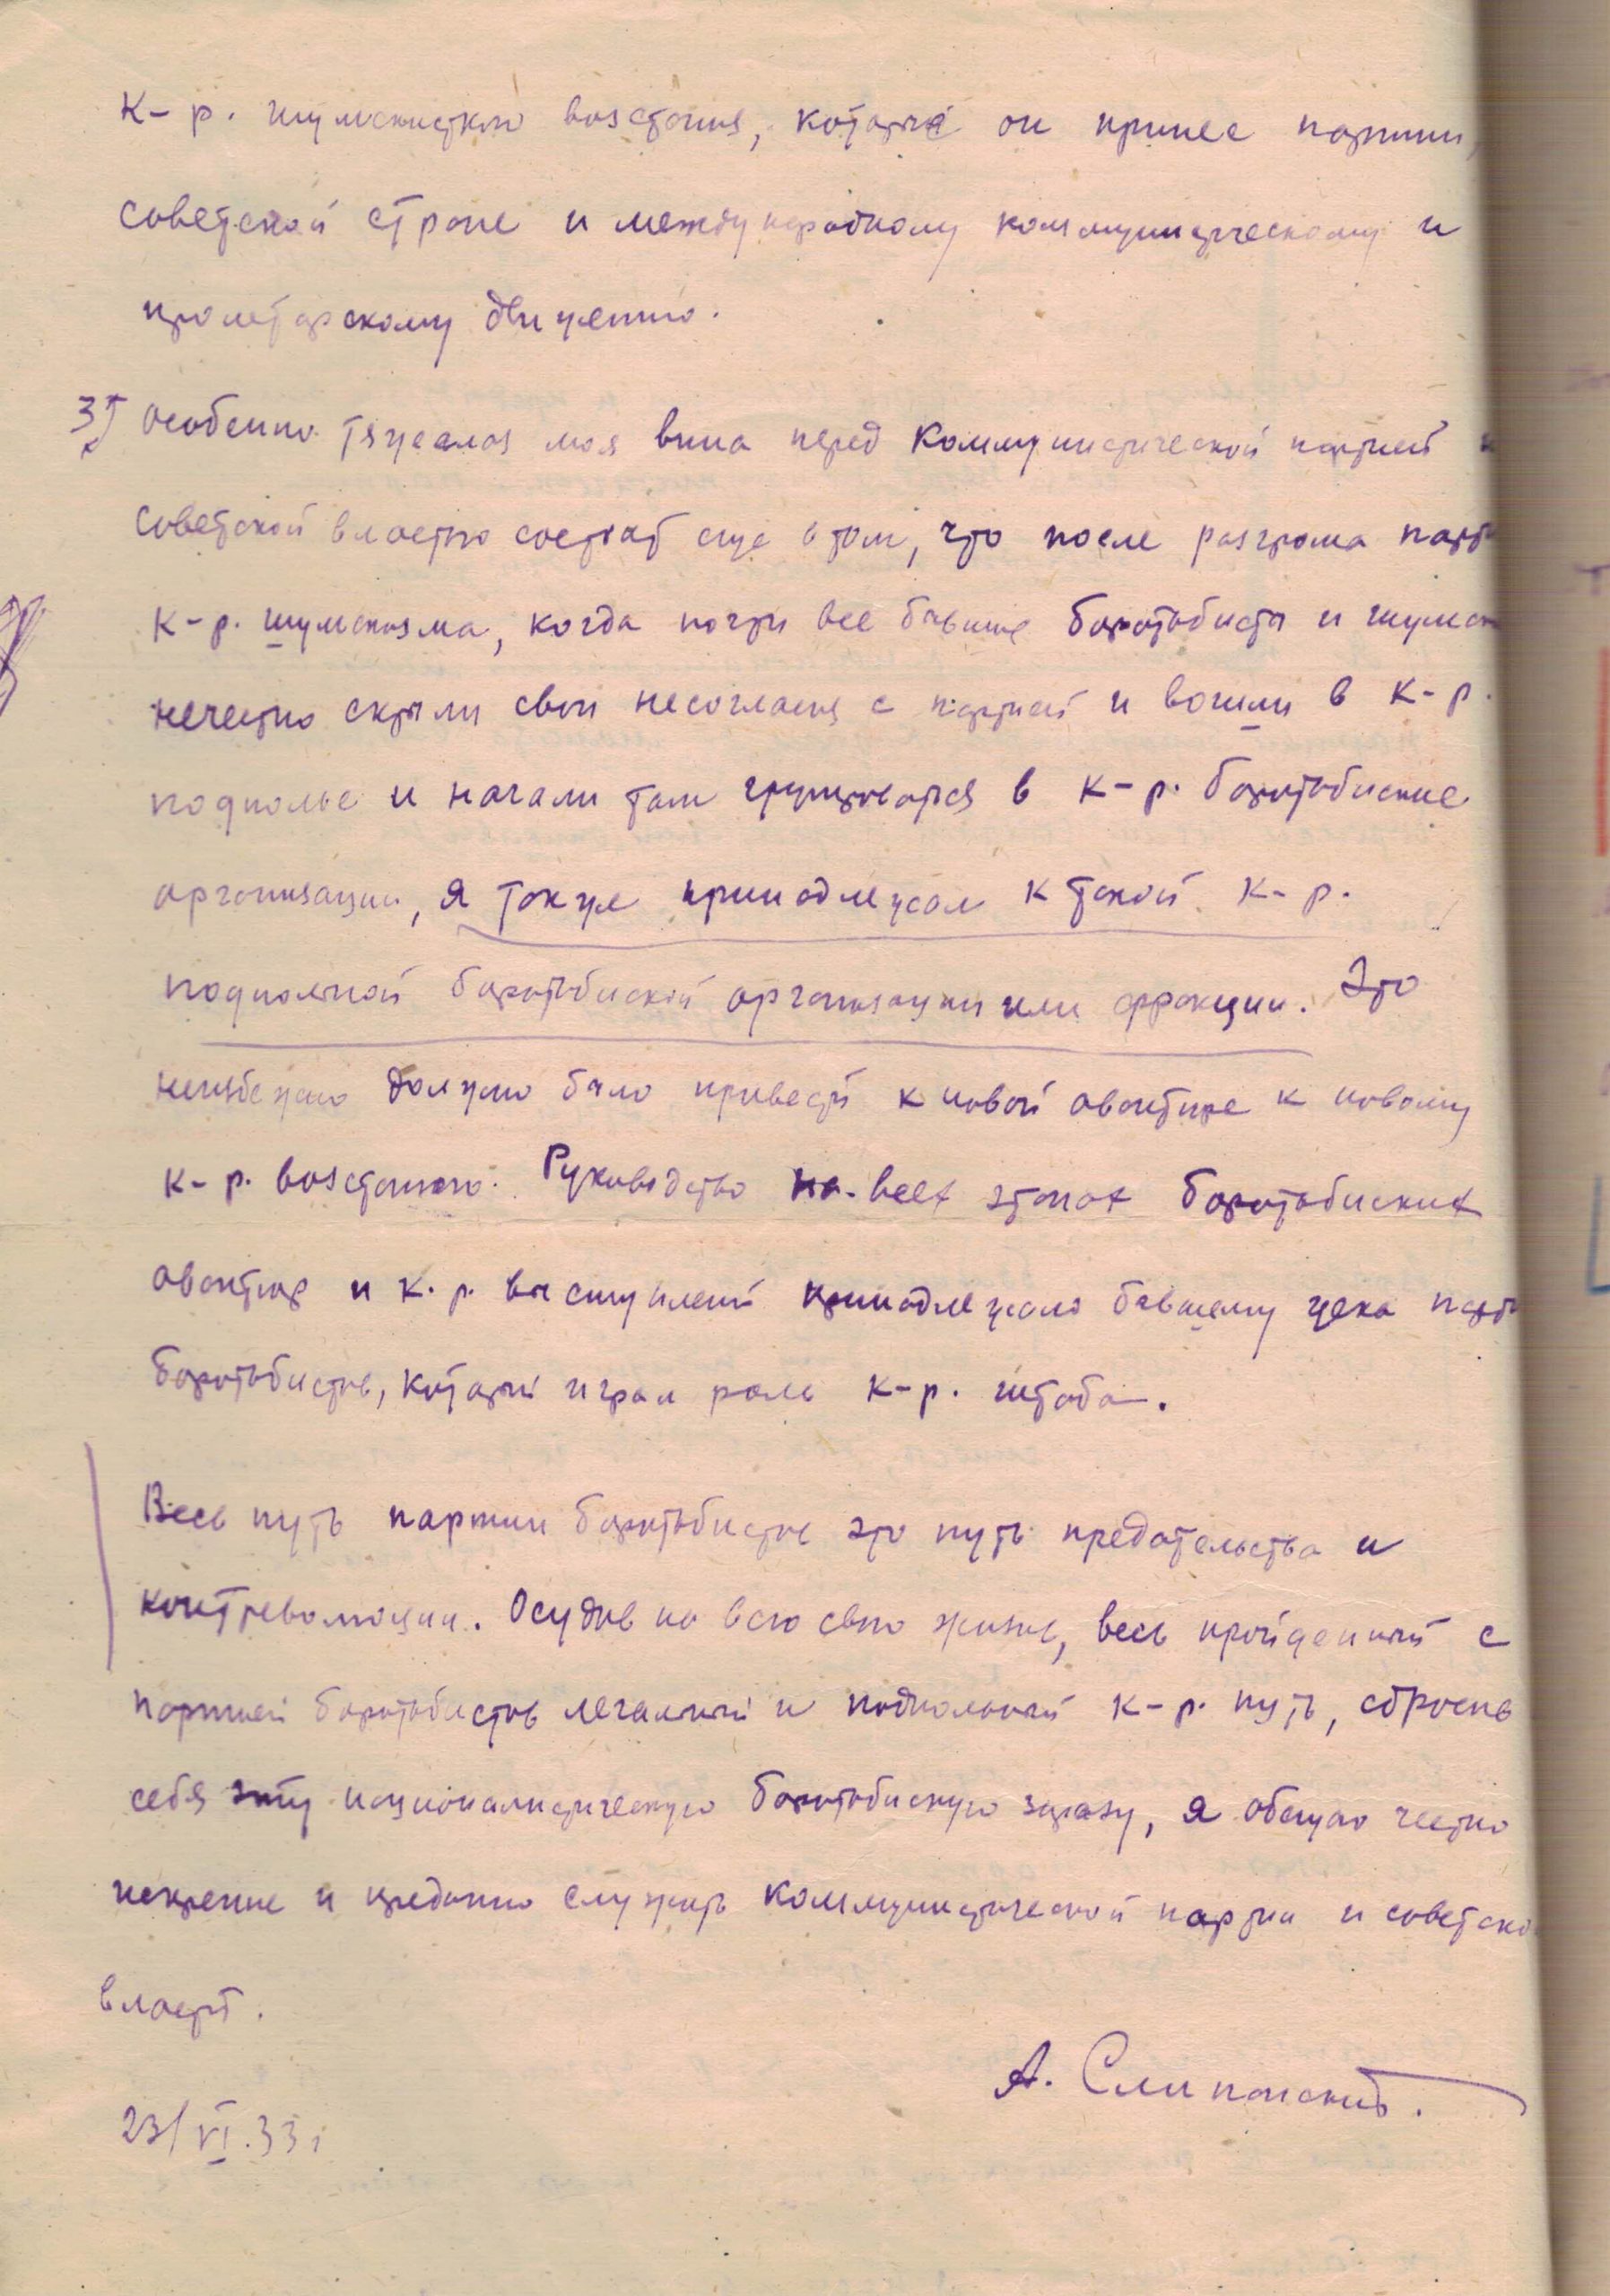 к-р. шумскисткого возстания, которые он принес партии,
советской стране и международному коммунистическому и
пролетарскому движению.
3) особенно тяжелая моя вина перед Коммунистической партией и
советской властью состоит еще в том, что после разгрома парт
к-р. шумскизма, когда почти все бывшие боротьбисты и шумск
нечестно скрыли свои несогласия с партией и вошли в к-р.
подполье и начали там группироваться в к-р. боротьбиские
организации, я также принадлежал к такой к-р.
подпольной боротьбиской организации или фракции. Это
неизбежно должно было привести к новой авантюре к новому
к-р. возстанию. Руководство на всех этапах боротьбиских
авантюр и к.р. выступлений принадлежало бывшему цека парт
боротьбистов, который играл роль к-р. штаба.
Весь путь партии боротьбистов это путь предательства и
контрреволюции. Осудив на всю свою жизнь, весь пройденный с
партией боротьбистов легальный и подпольный к-р. путь, сбросив
себя эту националистическую боротьбискую заразу, я обещаю честно
искренне и преданно служить Коммунистической партии и советско
власти.
А. Слипанский.
23/VI.33 г